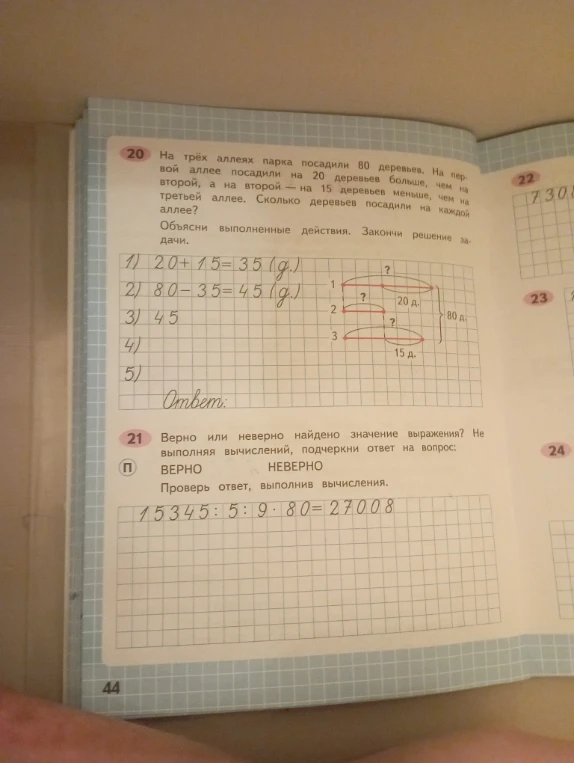 20 На трёх аллеях парка посадили 80 деревьев. На пер-
вой аллее посадили на 20 деревьев больше, чем на
второй, а на второй — на 15 деревьев меньше, чем на
третьей аллее. Сколько деревьев посадили на каждой
аллее?
Объясни выполненные действия. Закончи решение за-
дачи.
1) 20+15=35 (д.)
2) 80-35=45 (д.)
3) 45
4)
5)
Ответ:
?
1
?
20 д.
2
80 д.
?
3
15 д.
21 Верно или неверно найдено значение выражения? Не
выполняя вычислений, подчеркни ответ на вопрос:
П ВЕРНО НЕВЕРНО
Проверь ответ, выполнив вычисления.
15345:5:9·80=27008
44
22
730
23
24